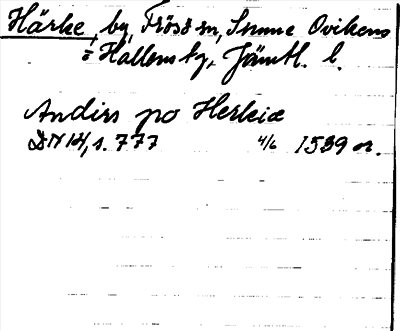 Härke, by, Frösö sn, Sunne Ovikens
o Hallens tg, Jämtl. l.
Andirs po Herkiæ
DN 14, s. 777 4/6 1539 or.